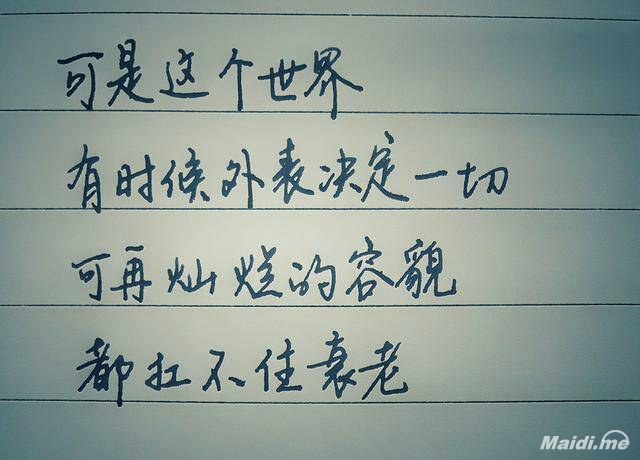 可是这个世界
有时候外表决定一切
可再灿烂的容貌
都扛不住衰老
Maidi.me